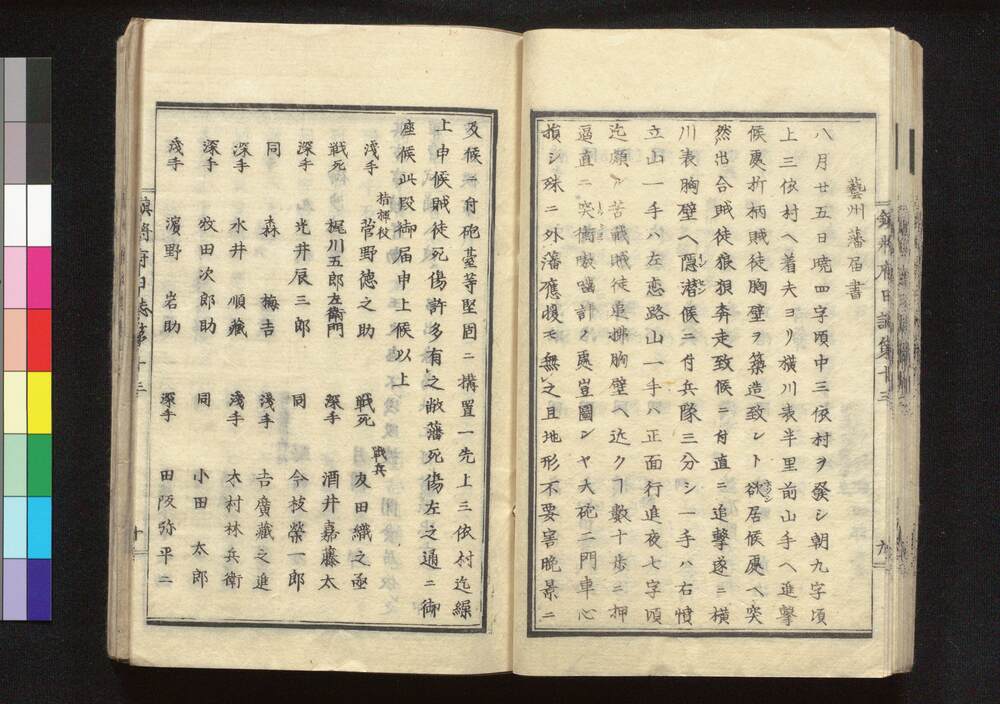 鎮将府日誌第十三
九
藝州藩届書
八月廿五日暁四字頃中三依村ヲ發シ朝九字頃
上三依村ヘ着夫ヨリ横川表半里前山手ヘ進撃
候處折柄賊徒胸壁ヲ築造致シト欲居候處ヘ突
然出合賊徒狼狽奔走致候ニ付直ニ追撃遂ニ横
川表胸壁ヘ隠潜候ニ付兵隊三分シ一手ハ右憤
立山一手ハ左恋路山一手ハ正面行進夜七字頃
迄頗ル苦戦賊徒車排胸壁ヘ近クヿ數十歩ニ押
逼直ニ突衝
計ノ處豈圖ンヤ大砲二門車心
損シ殊ニ外藩應援モ無之且地形不要害晩景ニ
及候ニ付砲臺等堅固ニ構置一先上三依村迄繰
上申候賊徒死傷許多有之敝藩死傷左之通ニ御
座候此段御届申上候以上
指揮役
浅手 菅野徳之助
戦死 梶川五郎左衛門
深手 光井辰三郎
同 森 梅吉
深手 水井順藏
深手 牧田次郎助
浅手 濱野 岩助
戰兵
戦死 友田織之亟
深手 酒井嘉藤太
同 今枝榮一郎
浅手 吉廣藏之進
浅手 木村林兵衛
同 小田 太郎
深手 田阪弥平二
鎮将府日誌第十三
十